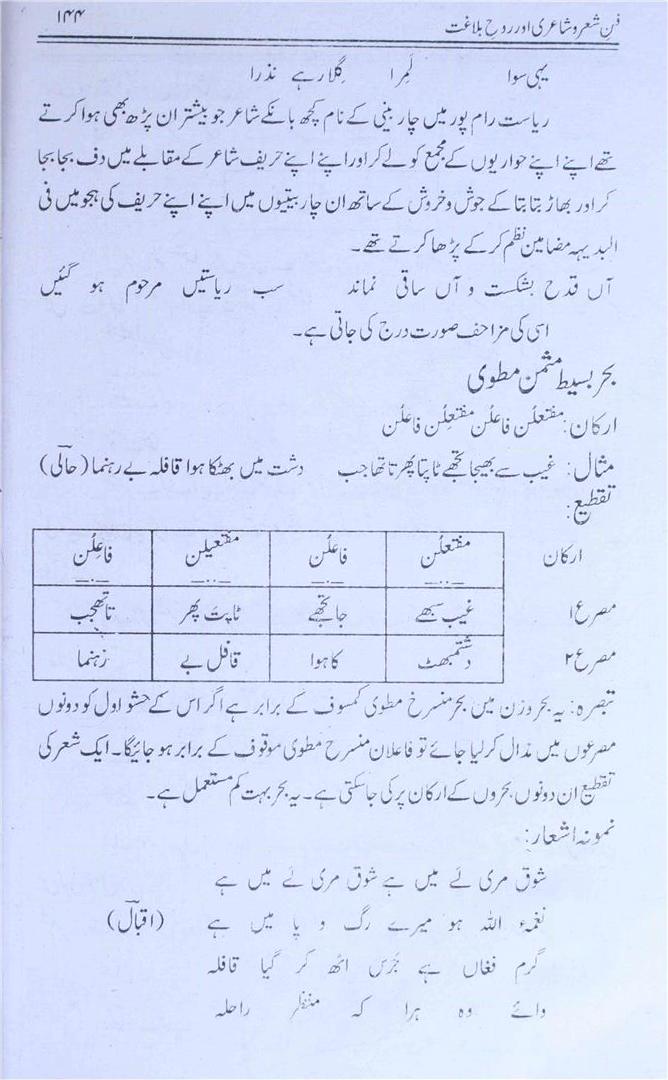 فنِ شعر و شاعری اور روحِ بلاغت ۱۴۴
یہی سوا لَمِرا گِلا رہے نذرا
ریاست رام پور میں چار بیتی کے نام کچھ بانکے شاعر جو بیشتر ان پڑھ بھی ہوا کرتے
تھے اپنے اپنے حواریوں کے مجمع کو لے کر اور اپنے اپنے حریف شاعر کے مقابلے میں دف بجا بجا
کر اور بھاؤ بتا بتا کے جوش و خروش کے ساتھ ان چار بیتیوں میں اپنے اپنے حریف کی ہجو میں فی
البدیہہ مضامین نظم کر کے پڑھا کرتے تھے۔
آں قدح بشکست و آں ساقی نماند سب ریاستیں مرحوم ہو گئیں
اسی کی مزاحف صورت درج کی جاتی ہے۔
بحر بسیط مثمن مطوی
ارکان: مفتعلُن فاعلُن مفتعلُن فاعلُن
مثال: غیب سے بھیجا تجھے ٹاپتا پھرتا تھا جب دشت میں بھٹکا ہوا قافلہ بے رہنما (حالیؔ)
تقطیع:
ارکان مفتعلُن فاعلُن مفتعیلن فاعِلُن
مصرع ۱ غیب سبھے جاتجھے ٹاپتَ پھر تاتھجب
مصرع ۲ دشتمبھٹ کاہوا قافل بے رَہنما
تبصرہ: یہ بحر وزن میں بحر منسرخ مطوی کمسوف کے برابر ہے اگر اس کے حشو اول کو دونوں
مصرعوں میں مذال کر لیا جائے تو فاعلان منسرح مطوی موقوف کے برابر ہو جائیگا۔ ایک شعر کی
تقطیع ان دونوں بحروں کے ارکان پر کی جا سکتی ہے۔ یہ بحر بہت کم مستعمل ہے۔
نمونہ اشعار:
شوق مری لے میں ہے شوق مری نے میں ہے
نغمۂ اللہ ہو میرے رگ و پا میں ہے (اقبالؔ)
گرم فغاں ہے جَرَس اٹھ کر گیا قافلہ
وائے وہ ہرا کہ منتظر راحلہ